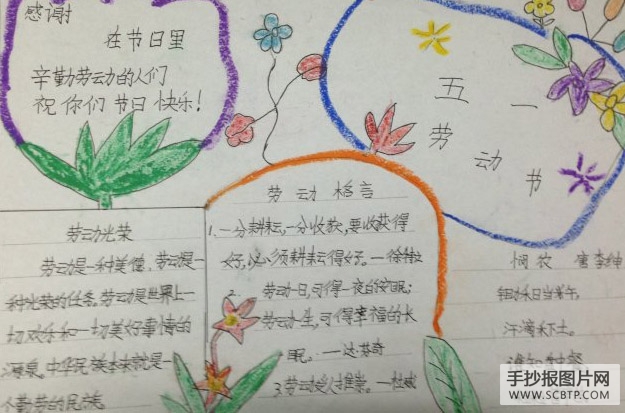 感谢
在节日里
辛勤劳动的人们
祝你们节日快乐！
五一
劳动节
劳动光荣
劳动是一种美德、劳动是一
种光荣的任务。劳动是世界上一
切欢乐和一切美好事情的
源泉。中华民族本来就是一
个勤劳的民族
劳动格言
1.一分耕耘，一分收获，要收获得
好，必须耕耘得好。一徐特立
2
劳动一日，可得一夜的安眠；
劳动一生，可得幸福的长
眠。一达芬奇
3.劳动受人推崇。一杜威
悯农 唐李绅
锄禾日当午，
汗滴禾下土。
谁知盘中餐
手抄报图片网
WWW.SCBTP.COM